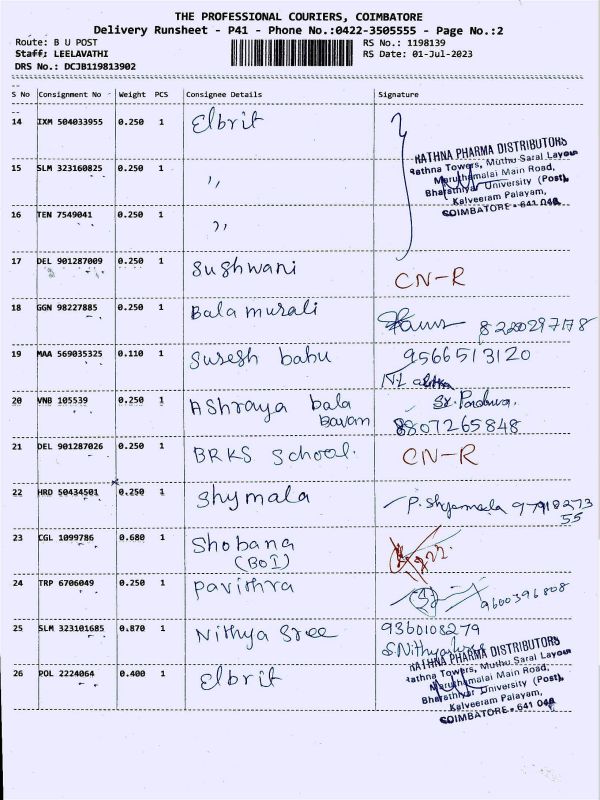 THE PROFESSIONAL COURIERS, COIMBATORE
Delivery Runsheet - P41 - Phone No.:0422-3505555 - Page No.:2
Route: B U POST RS No.: 1198139
Staff: LEELAVATHI RS Date: 01-Jul-2023
DRS No.: DCJB119813902
S No Consignment No Weight PCS Consignee Details Signature
14 IXM 504033955 0.250 1 Elbrit
RATHNA PHARMA DISTRIBUTORS
Rathna Towers, Muthu Saral Layout
Maruthamalai Main Road,
Bharathiyar University (Post),
Kalveeram Palayam,
COIMBATORE - 641 046.
15 SLM 323160825 0.250 1 ,,
16 TEN 7549041 0.250 1 ,,
17 DEL 901287009 0.250 1 Sushwani CN-R
18 GGN 98227885 0.250 1 Bala murali 8220297178
19 MAA 569035325 0.110 1 Suresh babu 9566513120
20 VNB 105539 0.250 1 Ashraya bala Sr.
bavan 8807265848
21 DEL 901287026 0.250 1 BRKS School. CN-R
22 HRD 50434501 0.250 1 Shymala P. Shyamala 97918273
55
23 CGL 1099786 0.680 1 Shobana
(BOI)
24 TRP 6706049 0.250 1 Pavithra 9600396808
25 SLM 323101685 0.870 1 Nithya Sree 9360108279
26 POL 2224064 0.400 1 Elbrit
RATHNA PHARMA DISTRIBUTORS
Rathna Towers, Muthu Saral Layout
Maruthamalai Main Road,
Bharathiyar University (Post),
Kalveeram Palayam,
COIMBATORE - 641 046